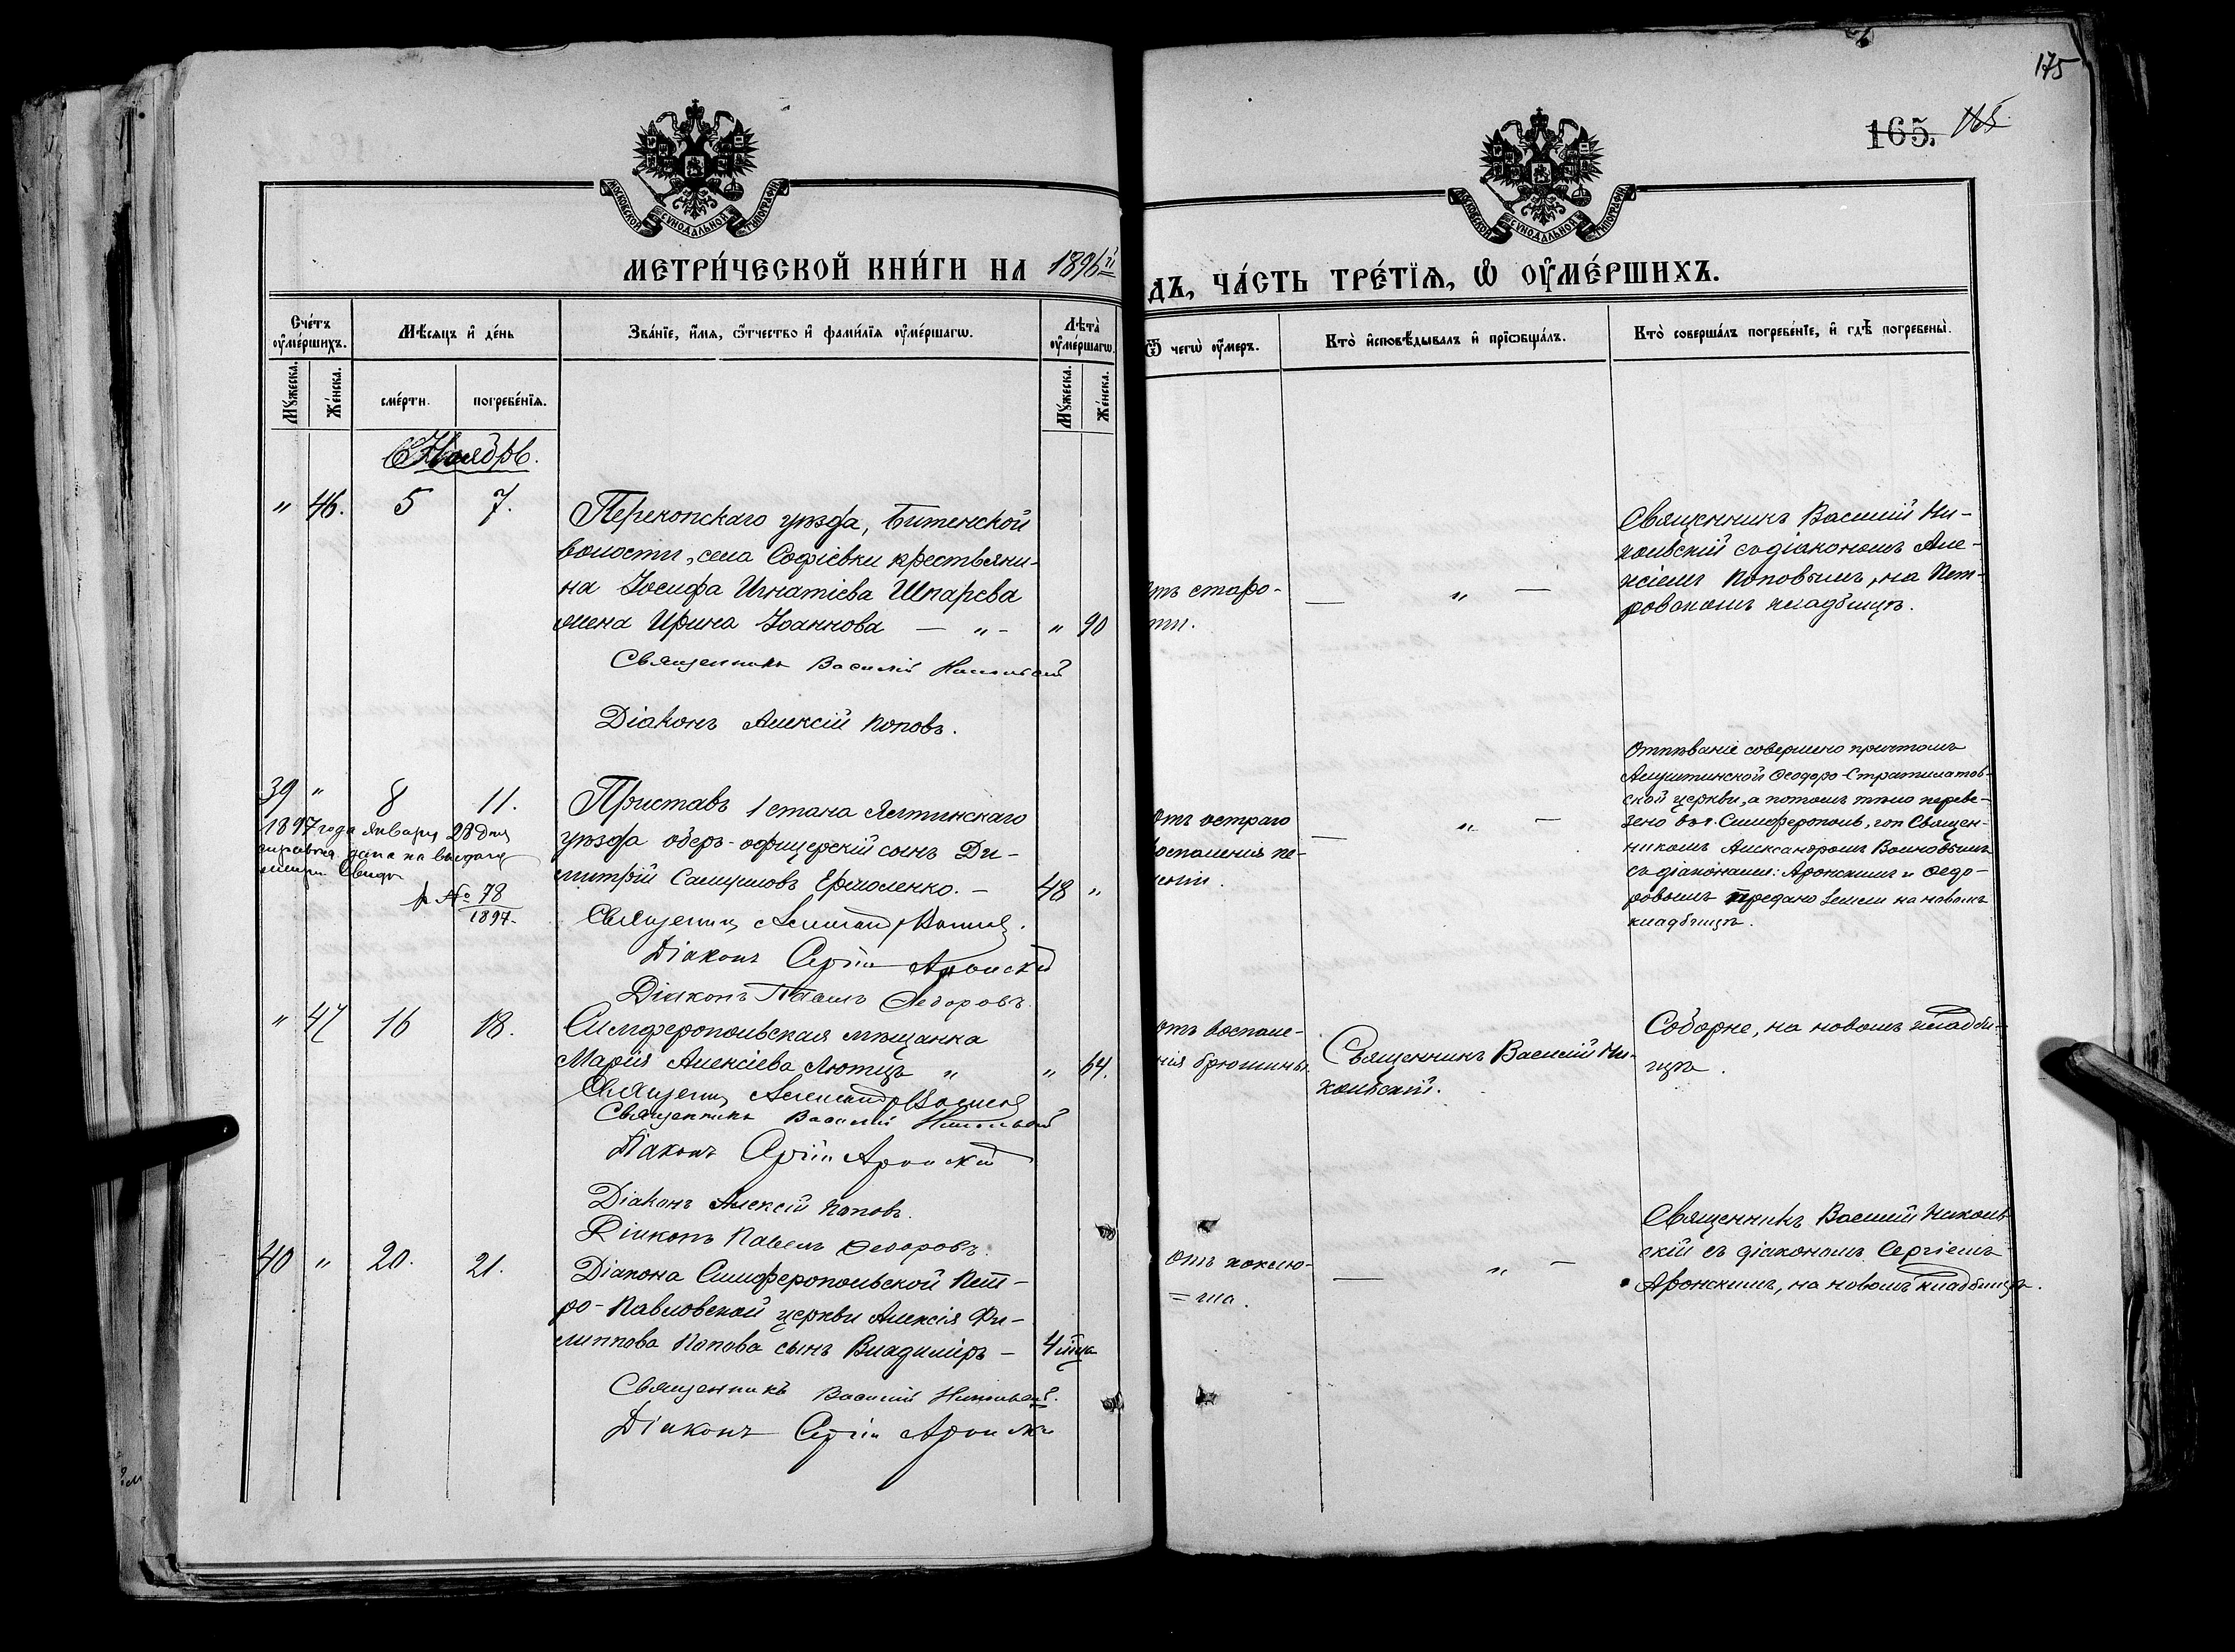 175
165.
МОСКОВСКОЙ СѴНОДАЛЬНОЙ ТИПОГРАФІИ
МОСКОВСКОЙ СѴНОДАЛЬНОЙ ТИПОГРАФІИ
МЕТРИ́ЧЕСКОЙ КНИ́ГИ НА 1896й
ДЪ, ЧА́СТЬ ТРЕ́ТЇѦ, Ѡ҆ ОУ҆МЕ́РШИХЪ.
Сче́тъ оу҆ме́ршихъ.
Мѣсѧцъ и҆ де́нь
Зва́нїе, и҆́мѧ, ѻ҆́тчество и҆ фами́лїѧ оу҆ме́ршагѡ.
Лѣта̀ оу҆ме́ршагѡ.
Ѿ чегѡ̀ оу҆́меръ.
Кто̀ и҆сповѣ́дывалъ и҆ прїѡбща́лъ.
Кто̀ соверша́лъ погребе́нїе, и҆ гдѣ̀ погребены̀.
Му́жеска.
Же́нска.
сме́рти.
погребе́нїѧ.
Му́жеска.
Же́нска.
Ноябрь.
" 46. 5 7.
Перекопскаго уѣзда, Битенской
волости, села Софіевки крестьяни-
на Іосифа Игнатіева Шпарева
жена Ирина Іоаннова — " - " 90
Священникъ Василій Никольскій
Діаконъ Алексій Поповъ.
отъ старо-
сти.
— " —
Священникъ Василій Ни-
кольскій съ діакономъ Але-
ксіемъ Поповымъ, на Пет-
ровскомъ кладбищѣ.
39 " 8 11.
1897 года Января 28 дня
справка дана на выдачу
метри. Свидѣ
№ 78
1897.
Приставъ 1 стана Ялтинскаго
уѣзда оберъ-офицерскій сынъ Ди-
митрій Самуиловъ Ермоленко. — 48 "
Священникъ Александръ Воиновъ.
Діаконъ Сергій Аронскій
Діаконъ Павелъ Федоровъ.
отъ остраго
воспаленія пе-
чени.
— " —
Отпѣваніе совершено причтомъ
Алуштинской Ѳеодоро-Стратилатов-
ской церкви, а потомъ тѣло переве-
зено въ г. Симферополь, гдѣ Священ-
никомъ Александромъ Воиновымъ
съ діаконами: Аронскимъ и Ѳедо-
ровымъ предано землѣ на новомъ
кладбищѣ.
" 47 16 18.
Симферопольская мѣщанка
Марія Алексіева Лютцъ " " 64.
Священникъ Александръ Воиновъ
Священникъ Василій Никольскій
Діаконъ Сергій Аронскій
Діаконъ Алексій Поповъ.
Діаконъ Павелъ Ѳедоровъ.
отъ воспале-
нія брюшины
Священникъ Василій Ни-
кольскій.
Соборне, на новомъ кладби-
щѣ.
40 " 20. 21.
Діакона Симферопольской Пет-
ро-Павловской церкви Алексія Фи-
липпова Попова сынъ Владиміръ — 4 м͠ца
Священникъ Василій Никольскій.
Діаконъ Сергій Аронскій
отъ коклю-
=ша.
— " —
Священникъ Василій Николь-
скій съ діакономъ Сергіемъ
Аронскимъ, на новомъ кладбищѣ.